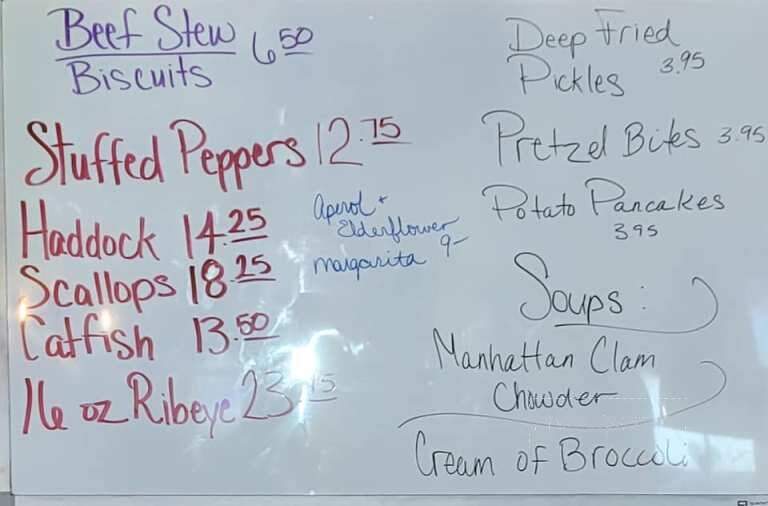 Beef Stew 6.50
Biscuits
Stuffed Peppers 12.75
Haddock 14.25
Scallops 18.25
Catfish 13.50
16 oz Ribeye 23
Aperol +
Elderflower
margarita 9-
Deep Fried
Pickles 3.95
Pretzel Bites 3.95
Potato Pancakes
3.95
Soups:
Manhattan Clam
Chowder
Cream of Broccoli